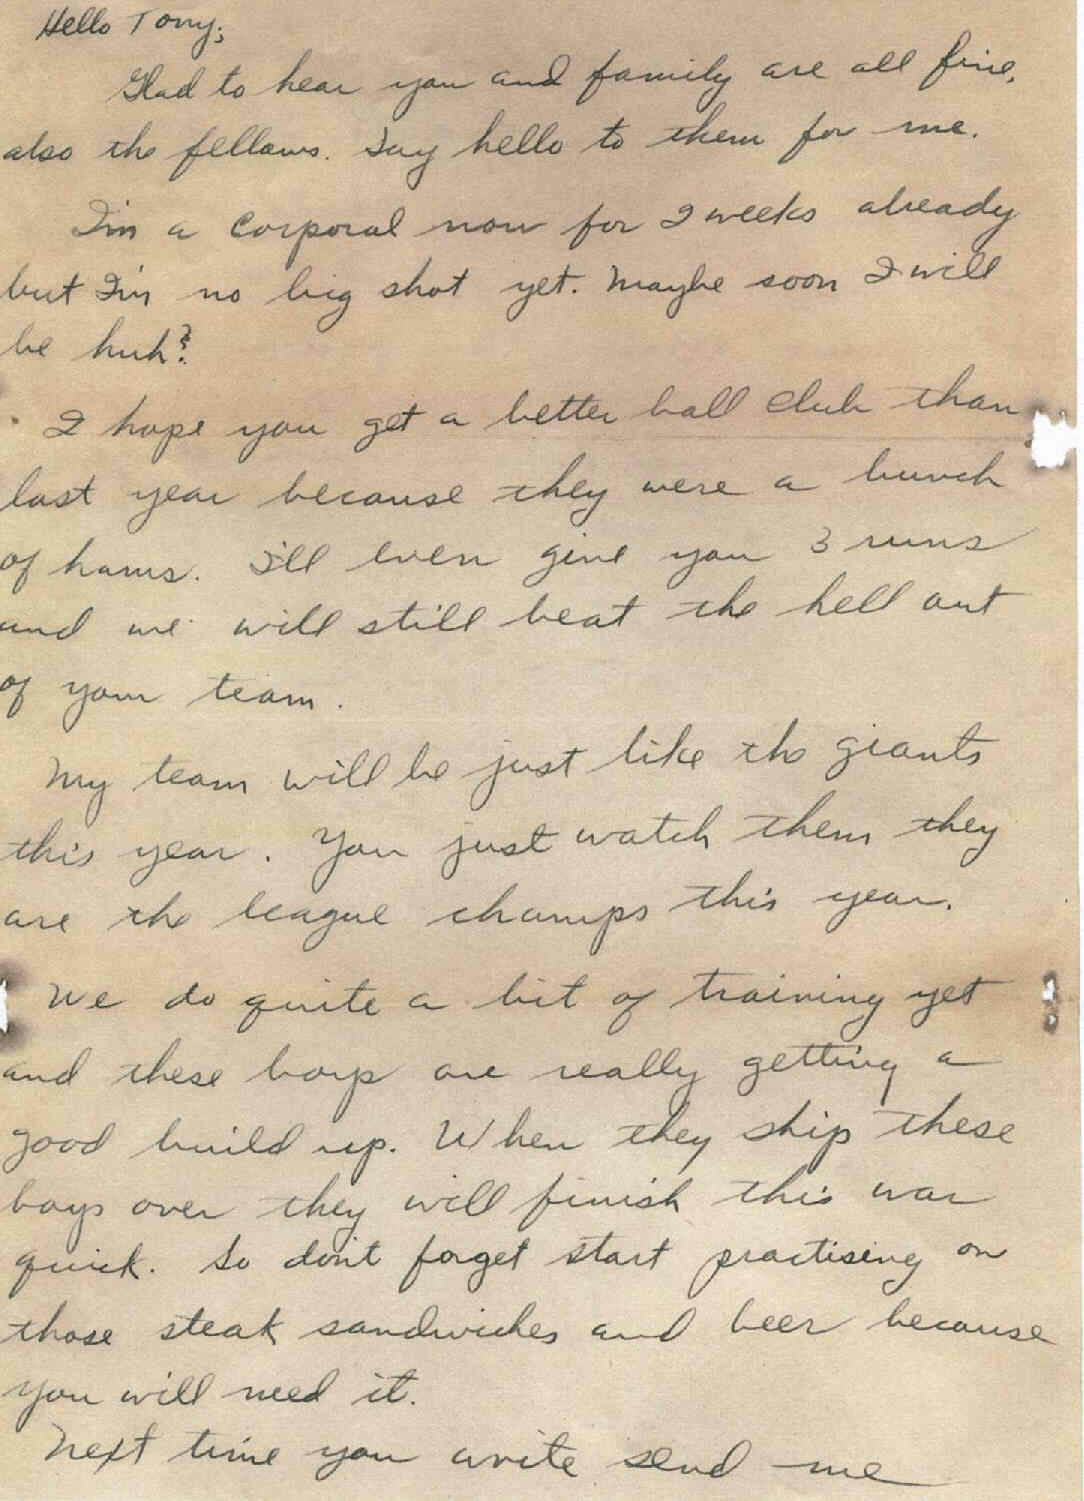 Hello Tony;
Glad to hear you and family are all fine,
also the fellows. Say hello to them for me.
I'm a Corporal now for 2 weeks already
but I'm no big shot yet. Maybe soon I will
be huh?
I hope you get a better ball club than
last year because they were a bunch
of hams. I'll even give you 3 runs
and we will still beat the hell out
of your team.
My team will be just like the giants
this year. You just watch them they
are the league champs this year.
We do quite a bit of training yet
and these boys are really getting a
good build up. When they ship these
boys over they will finish this war
quick. So don't forget start practising on
those steak sandwiches and beer because
you will need it.
Next time you write send me